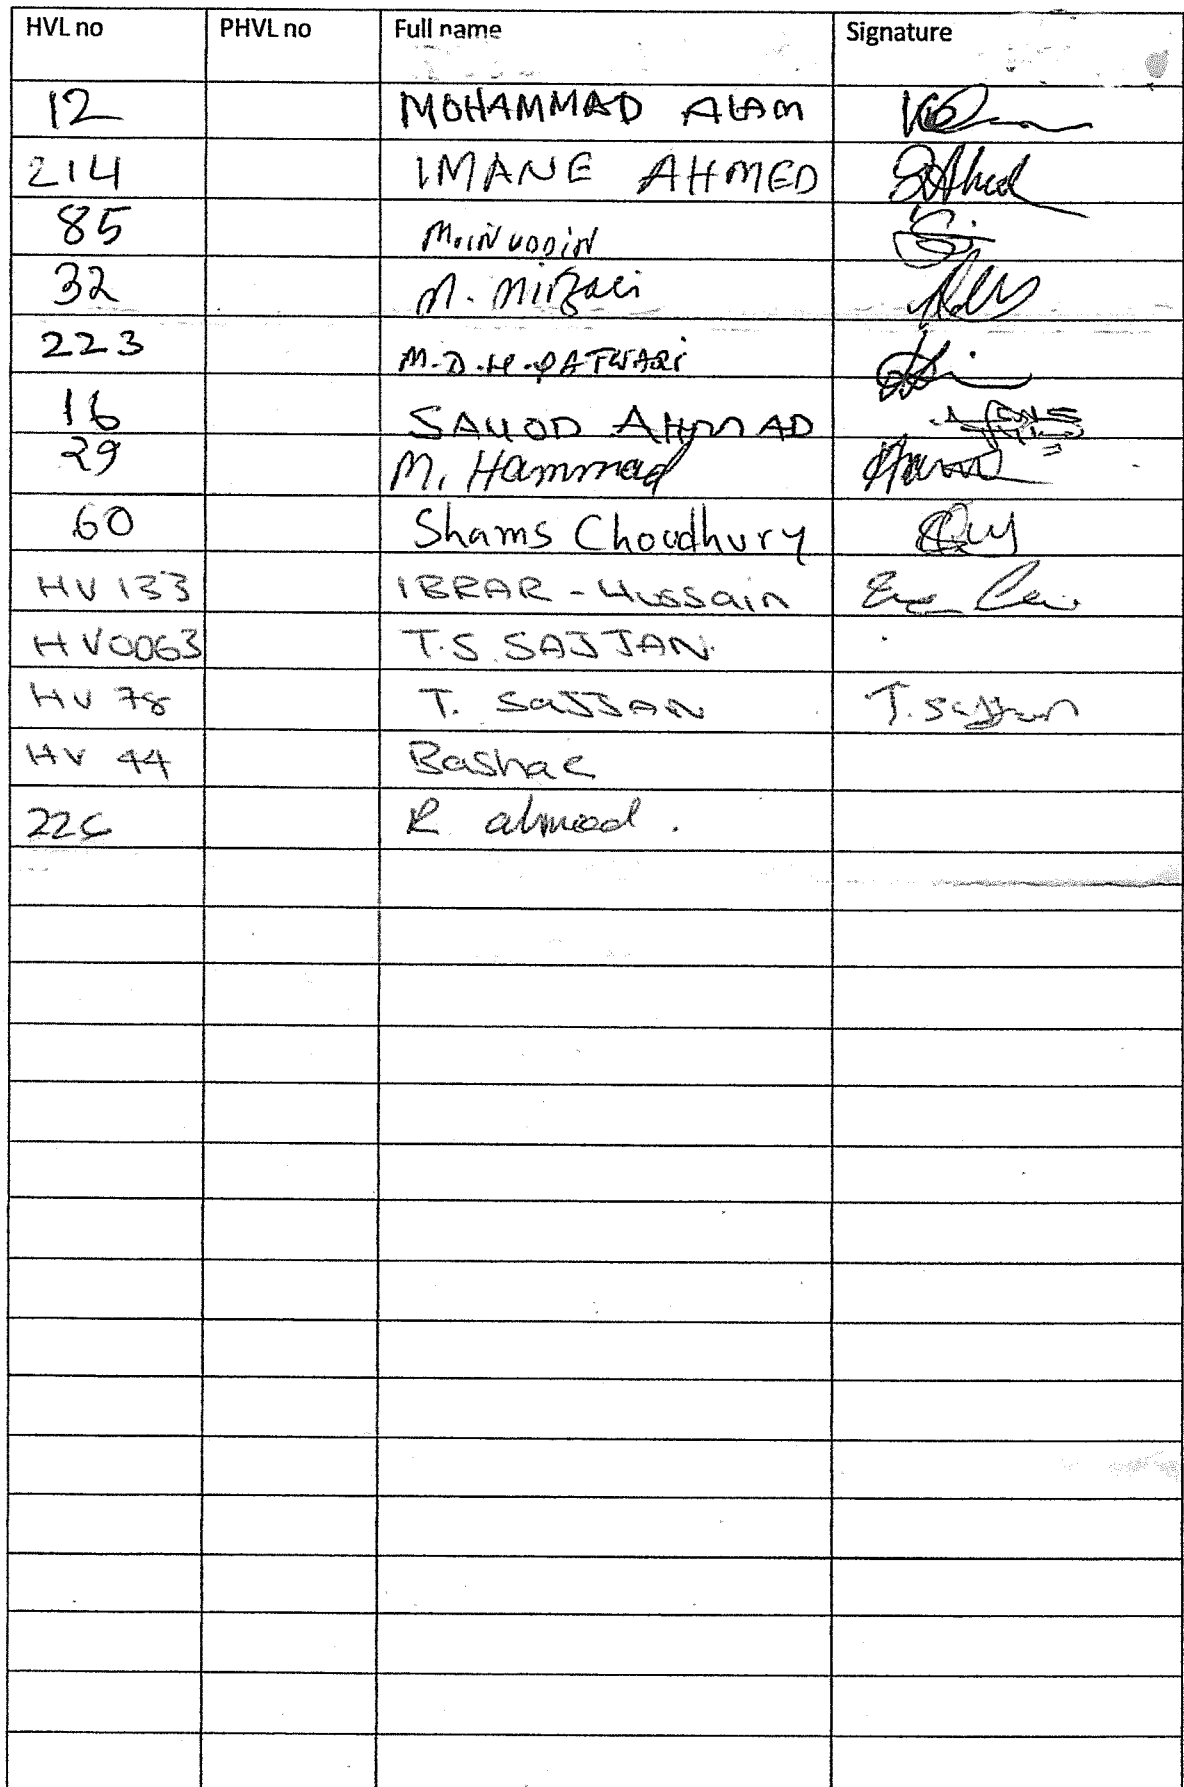 HVL no PHVL no Full name Signature
12 MOHAMMAD ALAM
214 IMANE AHMED
85 Moinuddin
32 M. Mirzaei
223 M.D.H.PATWARI
16 SAUOD AHMAD
29 M. Hammad
60 Shams Choudhury
HV 133 IBRAR - Hussain
HV0063 T.S. SAJJAN.
HV 78 T. SAJJAN T. Sajjan
HV 44 Bashar
R ahmad .